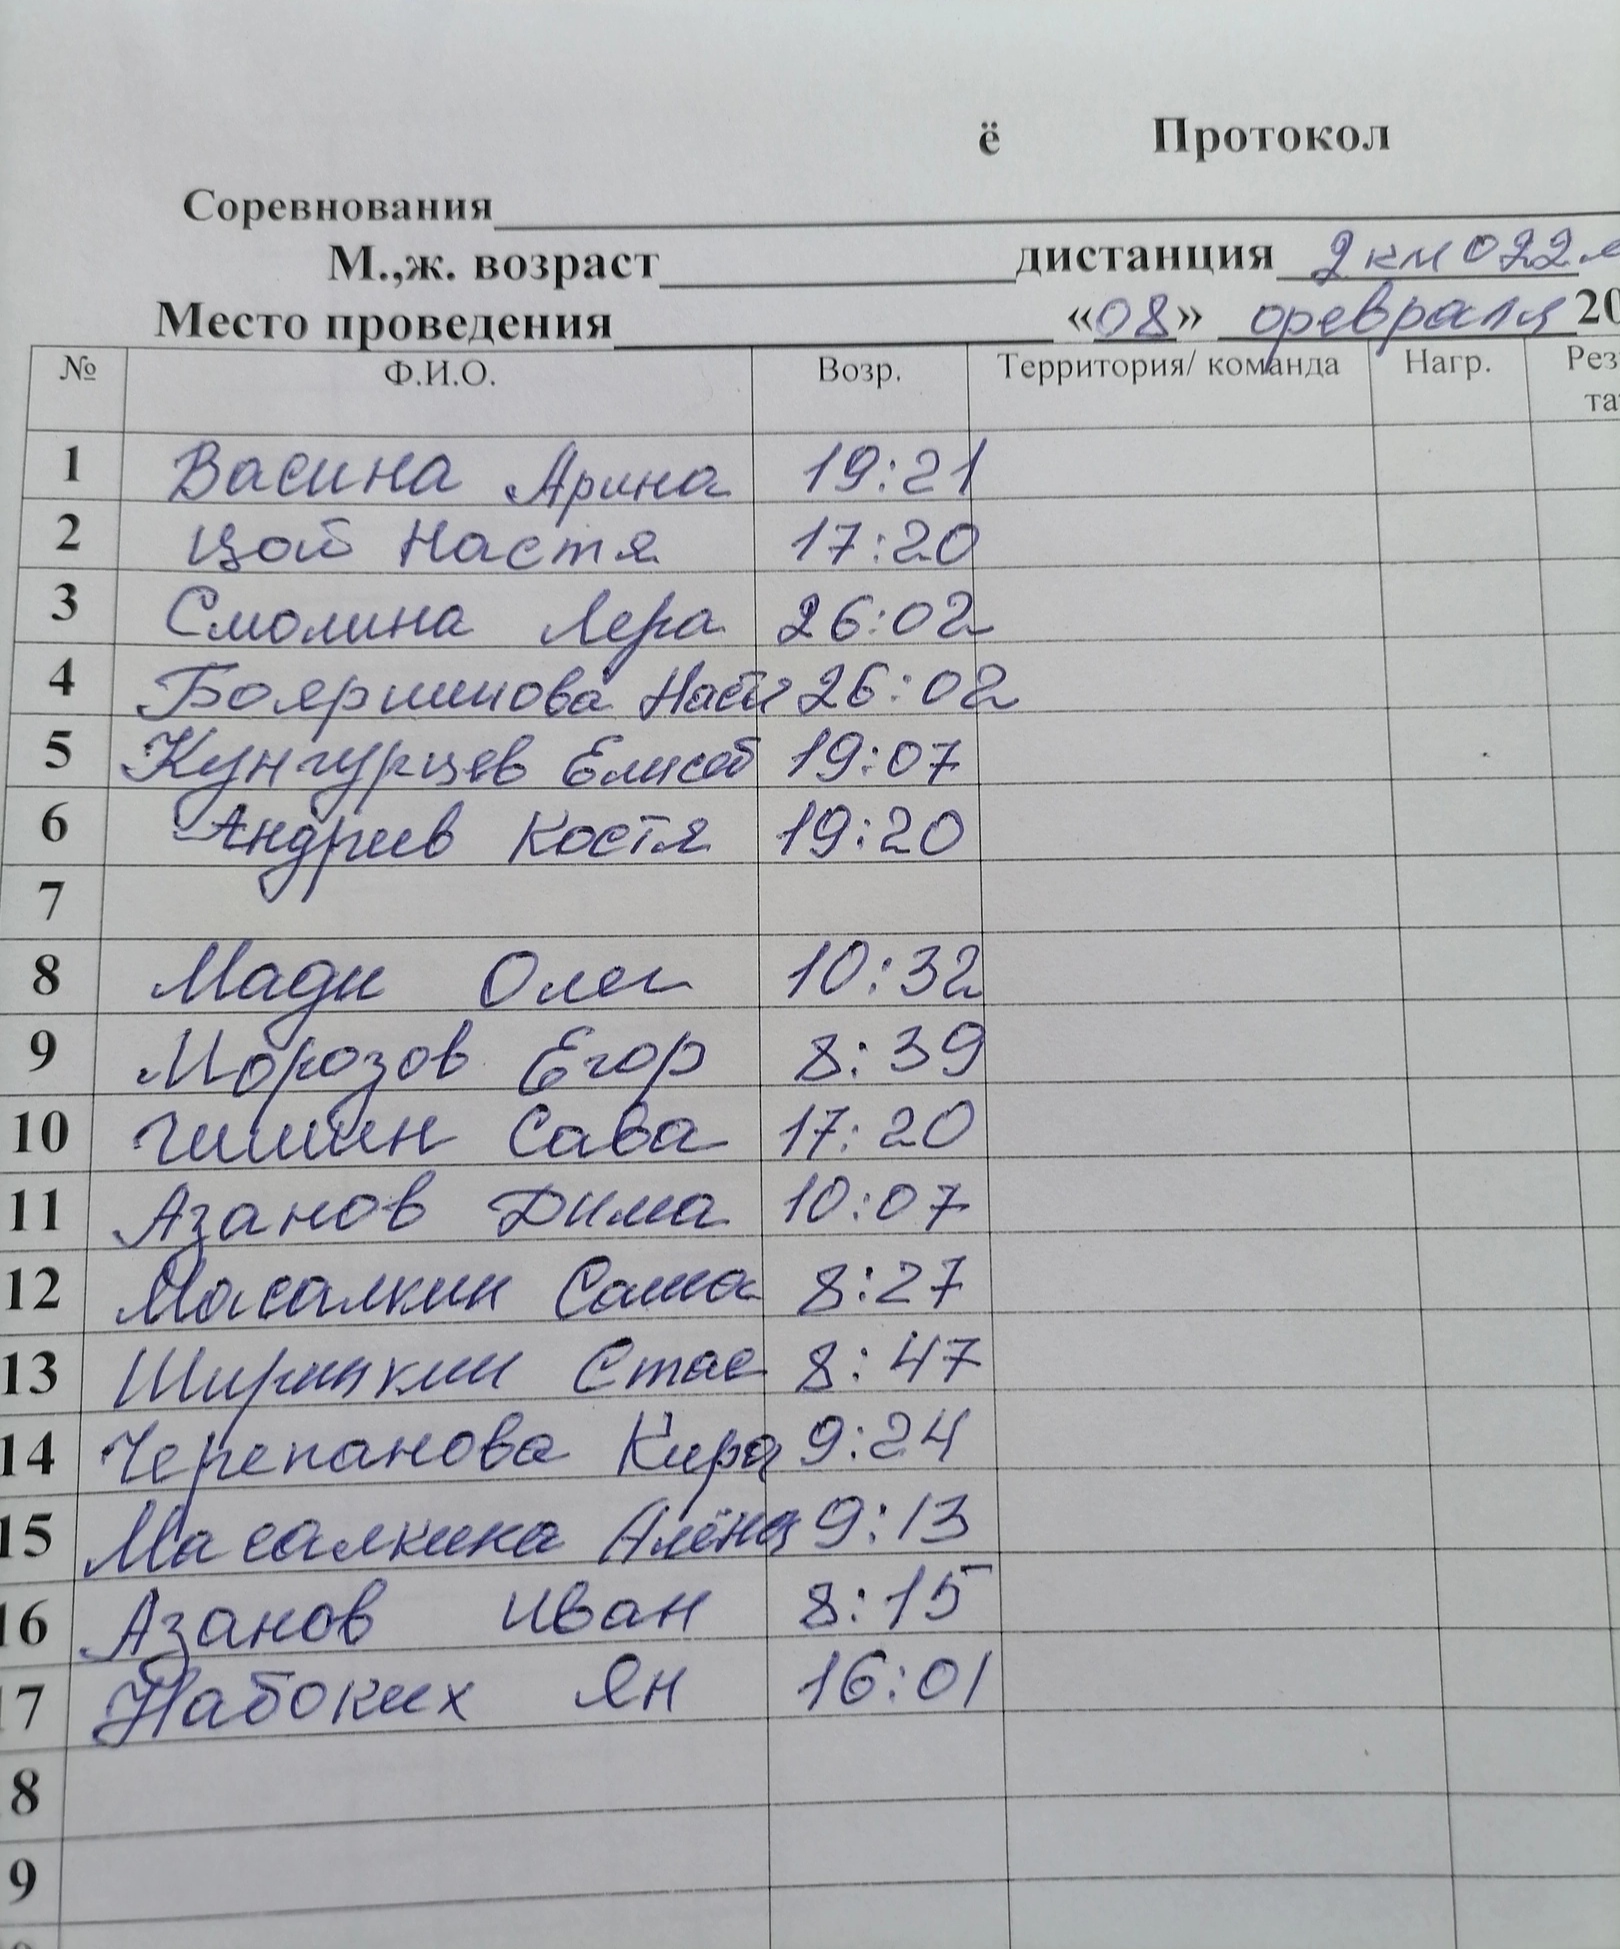 ё Протокол
Соревнования
М.,ж. возраст дистанция 2 км 022 м
Место проведения «08» февраля 20
№ Ф.И.О. Возр. Территория/ команда Нагр. Рез
та
1 Васина Арина 19:21
2 Цой Настя 17:20
3 Смолина Лера 26:02
4 Бояршинова Настя 26:02
5 Кунгурцев Елисей 19:07
6 Андреев Костя 19:20
7
8 Мади Олег 10:32
9 Морозов Егор 8:39
10 Сава 17:20
11 Азанов Дима 10:07
12 Масалкин Саша 8:27
13 Ширинкин Стас 8:47
14 Черепанова Кира 9:24
15 Масалкина Алёна 9:13
16 Азанов Иван 8:15
17 Набоких Ян 16:01
8
9